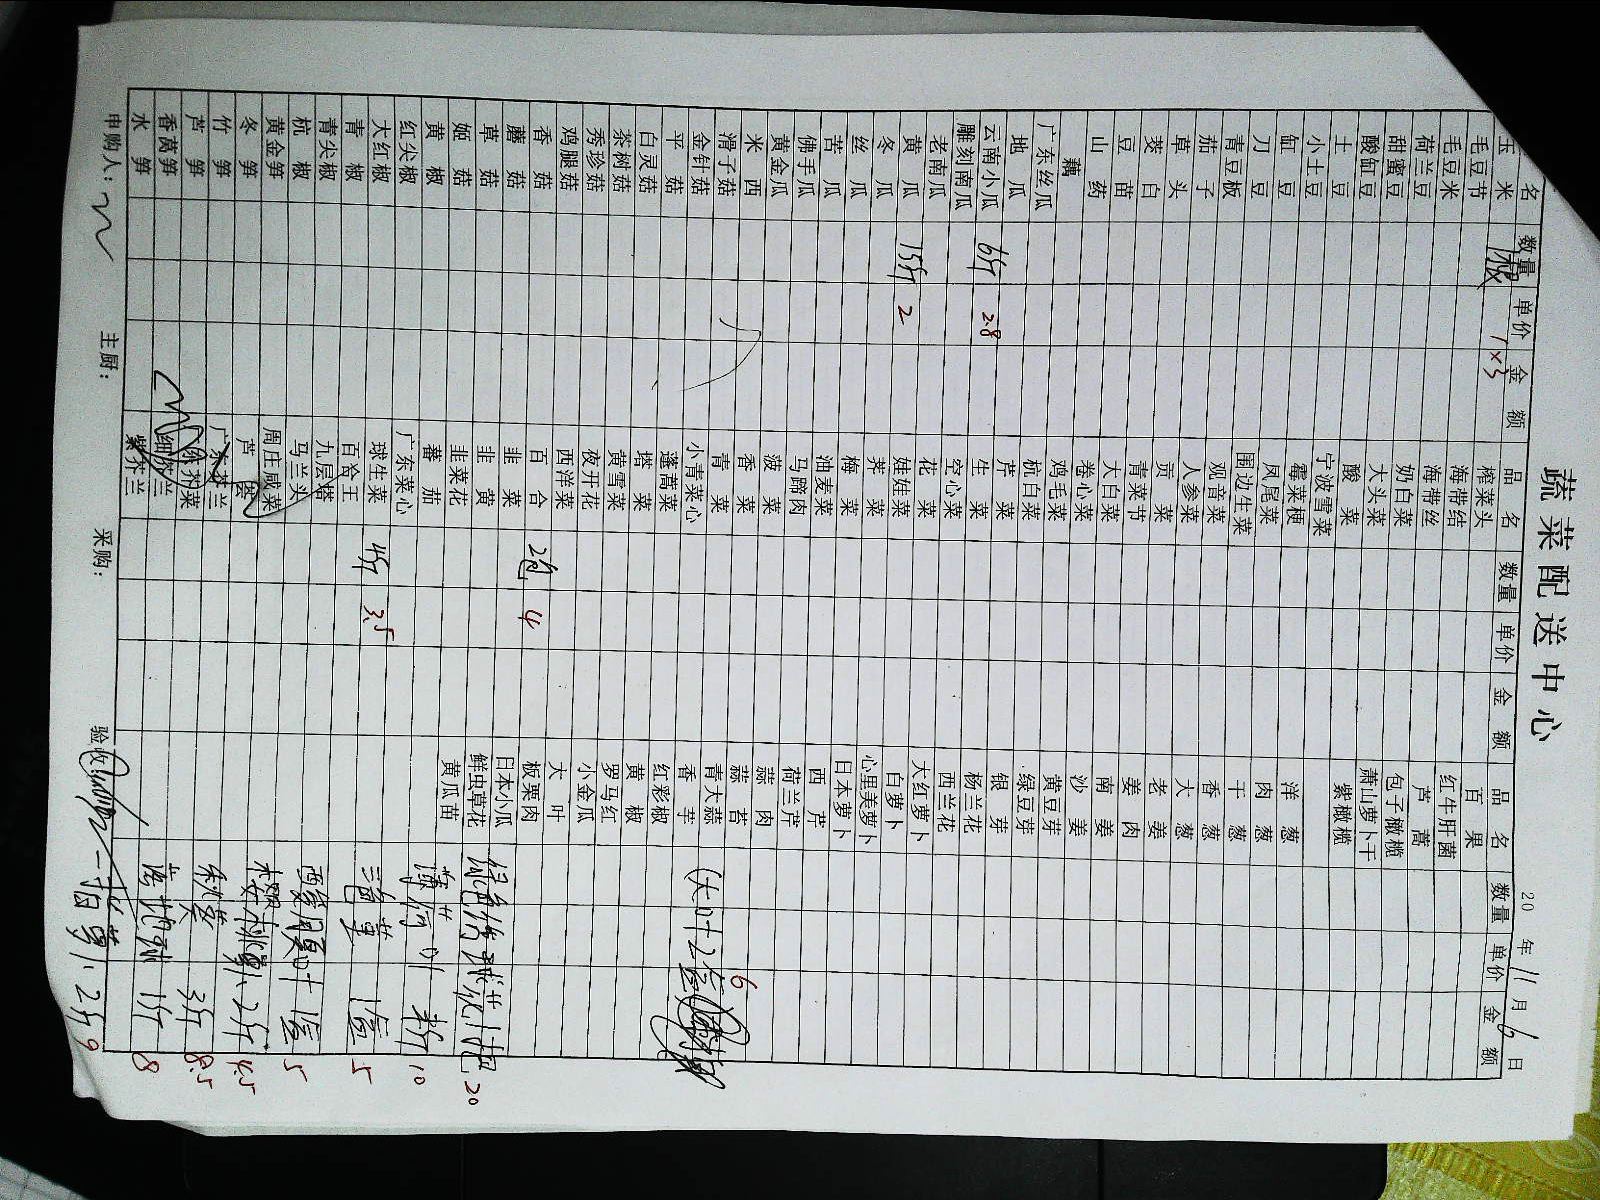 蔬菜配送中心
20 年 11 月 6 日
名 数量 单价 金额 品名 数量 单价 金额 品名 数量 单价 金额
玉米 1板 1×3 榨菜头 百果
毛豆节 海带结 红牛肝菌
毛豆米 海带丝 芦蒿
荷兰豆 奶白菜 包子橄榄
甜蜜豆 大头菜 萧山萝卜干
酸缸豆 酸菜 紫橄榄
土豆 宁波雪菜
小土豆 霉菜梗 洋葱
缸豆 凤尾菜 肉葱
刀豆 围边生菜 干葱
青豆板 观音菜 香葱
茄子 人参菜 大葱
草头 贡菜 老姜
茭白 青菜节 姜肉
豆苗 大白菜 南姜
山药 卷心菜 沙姜
藕 鸡毛菜 黄豆芽
广东丝瓜 杭白菜 绿豆芽
地瓜 芹菜 银芽
云南小瓜 6斤 2.8 生菜 杨兰花
雕刻南瓜 空心菜 西兰花
老南瓜 花菜 大红萝卜
黄瓜 15斤 2 娃娃菜 白萝卜
冬瓜 荠菜 心里美萝卜
丝瓜 梅菜 日本萝卜
苦瓜 油麦菜 西芹
佛手瓜 马蹄肉 荷兰芹
黄金瓜 菠菜 蒜肉
米西 香菜 蒜苔 6
滑子菇 青菜 青大蒜
金针菇 小青菜心 香芋 (大叶2盒
平菇 蓬蒿菜 红彩椒
白灵菇 塔菜 黄椒
茶树菇 黄雪菜 罗马红
秀珍菇 夜开花 小金瓜
鸡腿菇 西洋菜 大叶
香菇 百合 2包 4 板栗肉
蘑菇 韭菜 日本小瓜
草菇 韭黄 鲜虫草花 20
姬菇 韭菜花 黄瓜苗
黄椒 蕃茄 薄荷叶 10
红尖椒 广东菜心
大红椒 球生菜 4斤 3.5 三色堇 1盒 5
青椒 百合王
青尖椒 九层塔 1盒 5
杭椒 马兰头
黄金笋 周庄咸菜 2斤 4.5
冬笋 芦荟
竹笋 广东芥兰 秋葵 3斤 8.5
芦笋 芥菜
香莴笋 细芥兰 1斤 8
水笋 紫芥兰
申购人: 主厨: 采购: 验收: 2斤 9